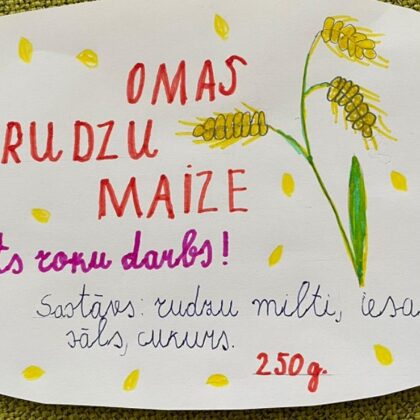 OMAS
RUDZU
MAIZE
roku darbs!
Sastāvs: rudzu milti,
sāls, cukurs.
250g.